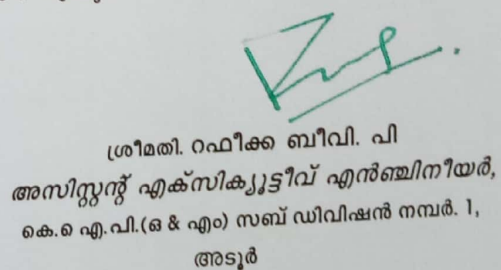 ശ്രീമതി. റഫീക്ക ബീവി. പി
അസിസ്റ്റന്റ് എക്സിക്യൂട്ടീവ് എൻഞ്ചിനീയർ,
കെ.ഐ എ.പി.(ഒ & എം) സബ് ഡിവിഷൻ നമ്പർ. 1,
അടൂർ